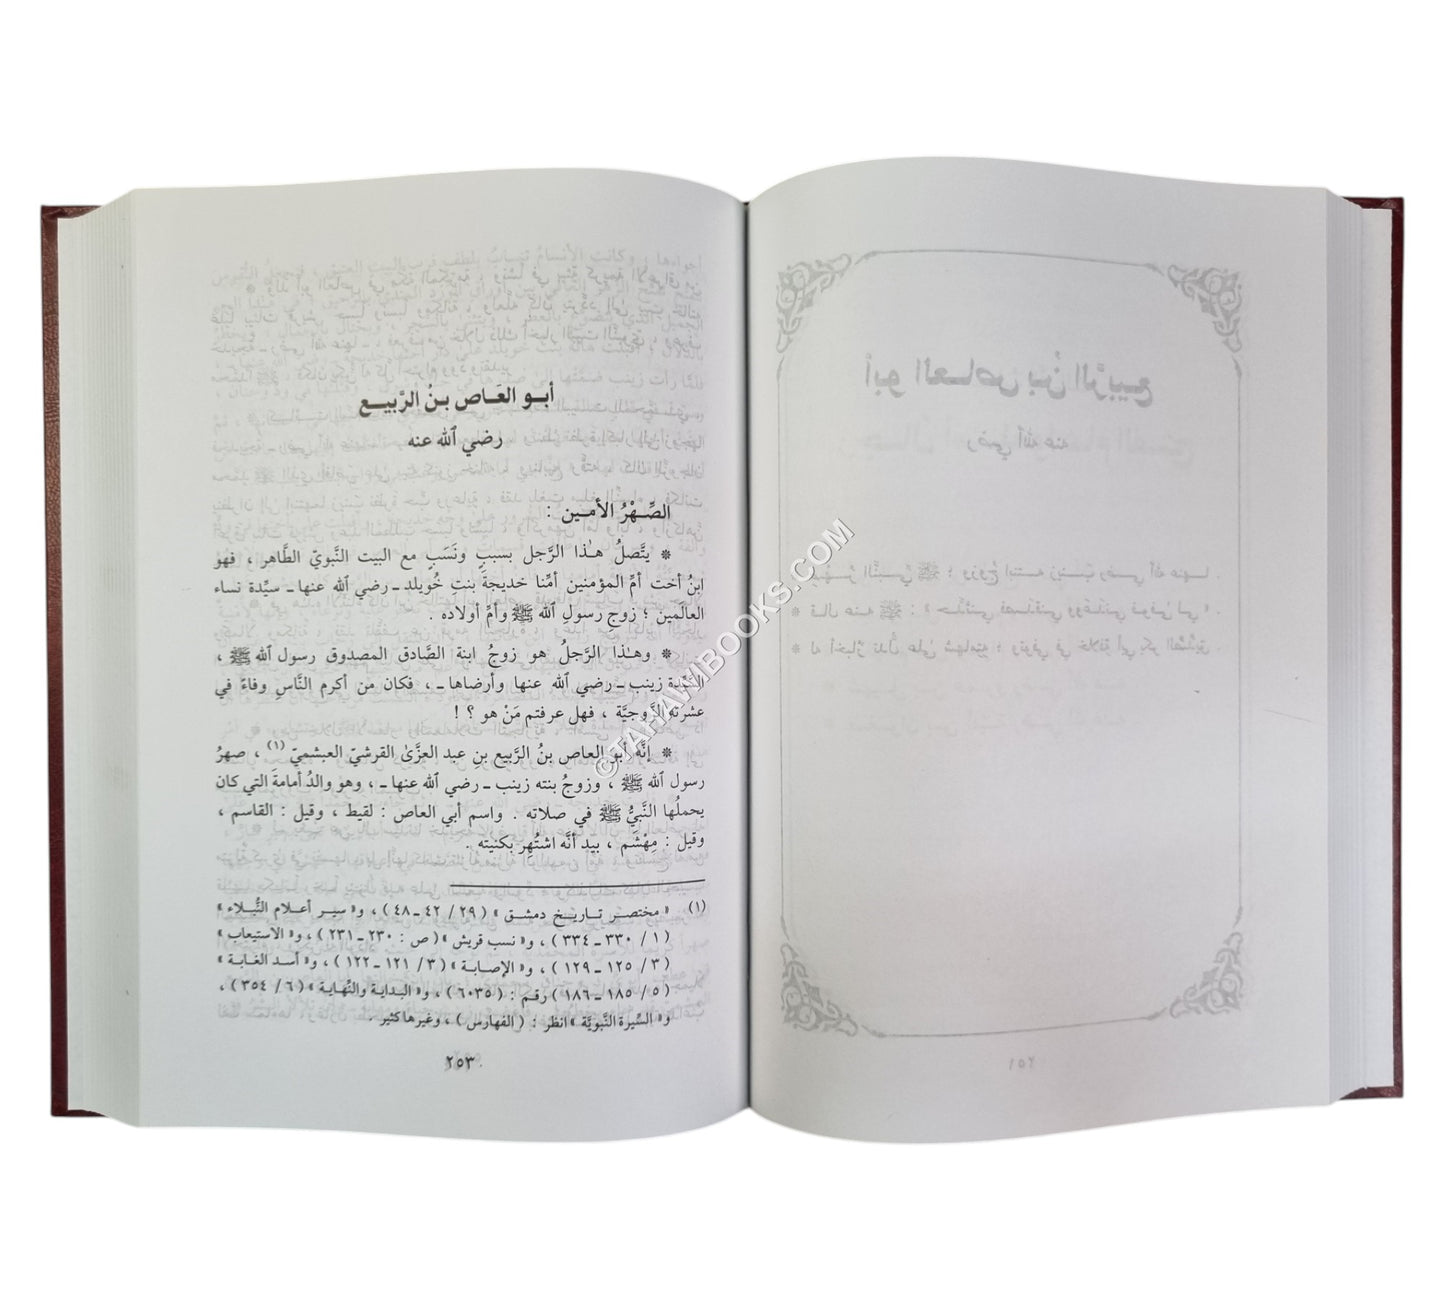 أبو العَاص بنُ الرَّبيع
رضي الله عنه
الصِّهْرُ الأمين :
* يتَّصلُ هٰذا الرَّجل بسببٍ ونَسَبٍ مع البيت النَّبويّ الطَّاهر ، فهو
ابنُ أخت أمِّ المؤمنين أمِّنا خديجةَ بنتِ خُويلد ـ رضي الله عنها ـ سيِّدة نساء
العالَمين ؛ زوجِ رسولِ الله ﷺ وأمِّ أولاده .
* وهٰذا الرَّجلُ هو زوجُ ابنة الصَّادق المصدوق رسول الله ﷺ ،
السَّيِّدة زينب ـ رضي الله عنها وأرضاها ـ ، فكان من أكرم النَّاسِ وفاءً في
عشرته الزَّوجيَّة ، فهل عرفتم مَنْ هو ؟ !
* إنَّه أبو العاص بنُ الرَّبيع بنِ عبد العزَّىٰ القرشيّ العبشميّ (١) ، صهرُ
رسول الله ﷺ ، وزوجُ بنته زينب ـ رضي الله عنها ـ ، وهو والدُ أمامةَ التي كان
يحملُها النَّبيُّ ﷺ في صلاته . واسم أبي العاص : لقيط ، وقيل : القاسم ،
وقيل : مِهْشَم ، بيد أنَّه اشتُهِر بكنيته .
(١) « مختصر تاريخ دمشق » ( ٢٩ / ٤٢ ـ ٤٨ ) ، و« سير أعلام النُّبلاء »
( ١ / ٣٣٠ ـ ٣٣٤ ) ، و« نسب قريش » ( ص : ٢٣٠ ـ ٢٣١ ) ، و« الاستيعاب »
( ٣ / ١٢٥ ـ ١٢٩ ) ، و« الإصابة » ( ٣ / ١٢١ ـ ١٢٢ ) ، و« أسد الغابة »
( ٥ / ١٨٥ ـ ١٨٦ ) رقم : ( ٦٠٣٥ ) ، و« البداية والنِّهاية » ( ٦ / ٣٥٤ ) ،
و« السِّيرة النَّبويَّة » انظر : ( الفهارس ) ، وغيرها كثير .
٢٥٣
© TAHAWIBOOKS.COM